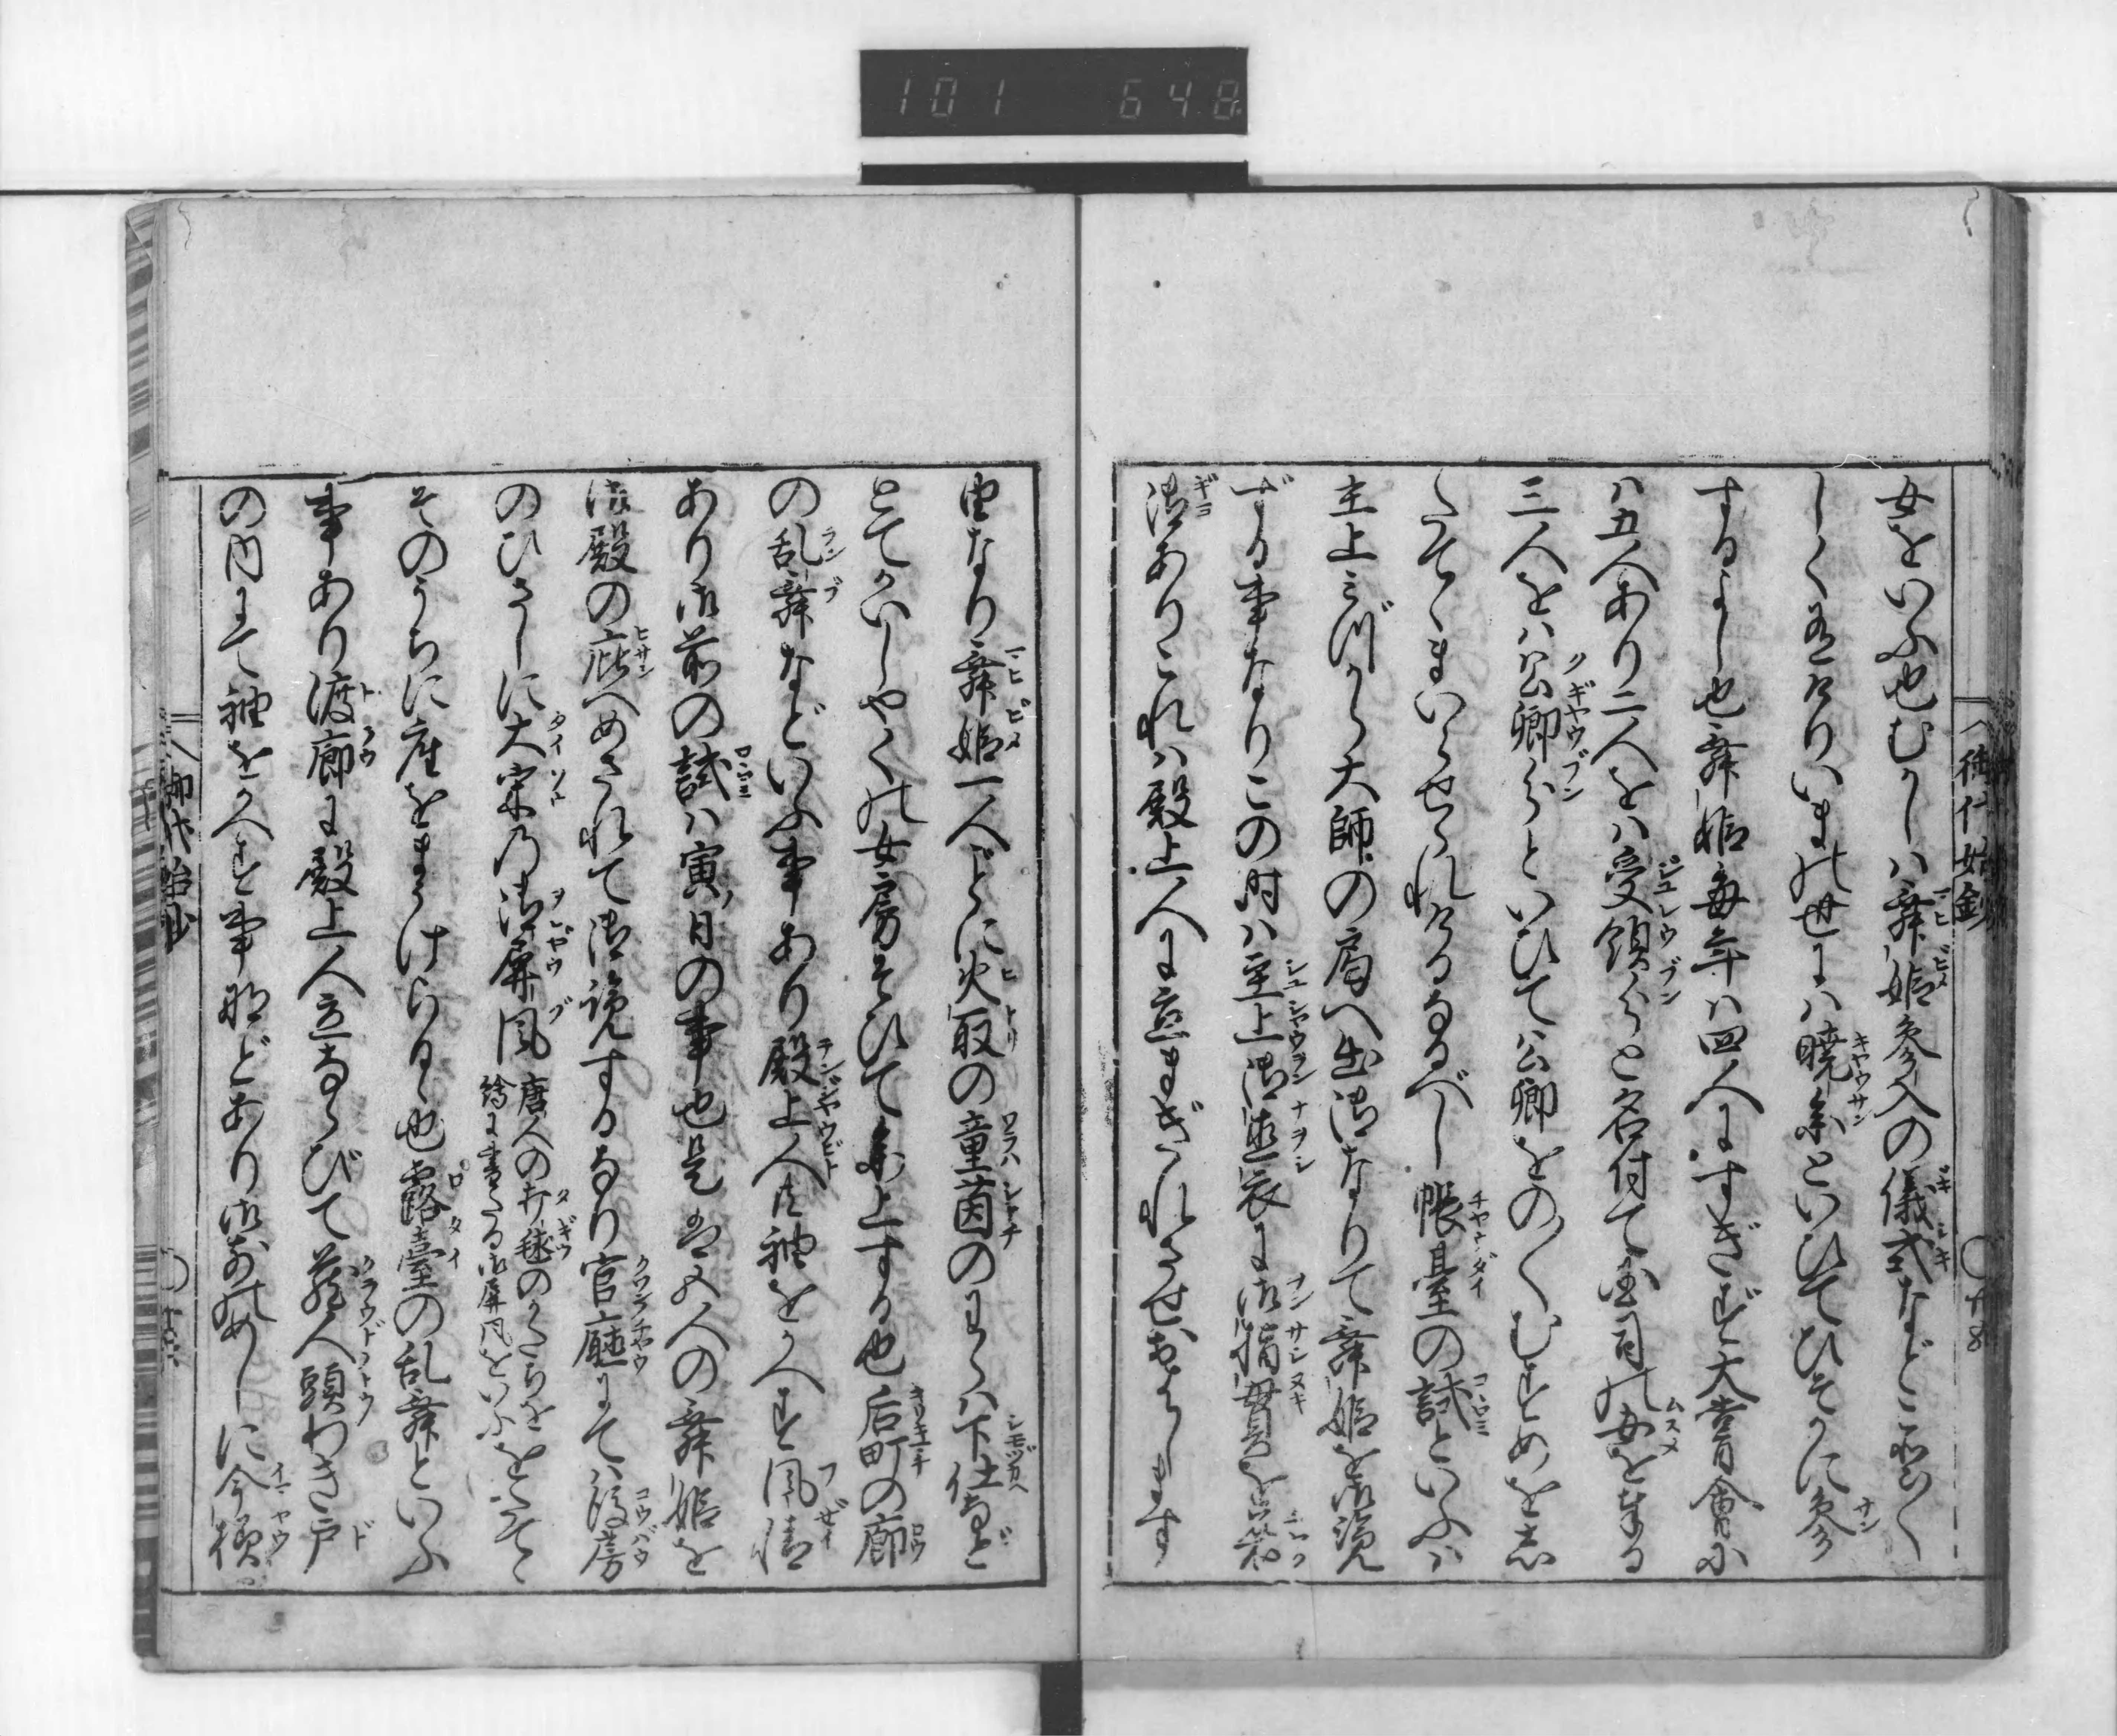 101 648
女をいふ也むかしハ舞姫参入の儀式などこと〳〵
しく有けりいまの世にハ暁参といひてひそかに参
するよし也舞姫毎年ハ四人にすぎず大嘗會に
ハ五人あり二人をハ受領分と名付て国司の女を奉る
三人をハ公卿分といひて公卿をの〳〵むすめを
たてまいらせられけるなるべし帳臺の試といふハ
主上みづから大師の局へ出御なりて舞姫を御覧
ずる事なりこの時ハ主上御直衣に御指貫を
御ありこれハ殿上人に立まぎれさせおはします
由なり舞姫一人ごとに火取の童茵のわらハ下仕など
とてかいしやくの女房そひて参上する也后町の廊
の乱舞などいふ事あり殿上人片袖をかへす風情
あり御前の試ハ寅ノ日の事也是も五人の舞姫を
御殿の庇へめされて御覧するなり官廳にてハ後房
のひさしに大宋の御屏風唐人の打毬のかたちを
絵に書たる御屏風をいふをたてゝ
そのうちに座をまうけらるゝ也露臺の乱舞といふ
事あり渡廊に殿上人立ならびて蔵人頭わき戸
の内にて袖をかへす事などあり御前のめしに今様
御代始鈔